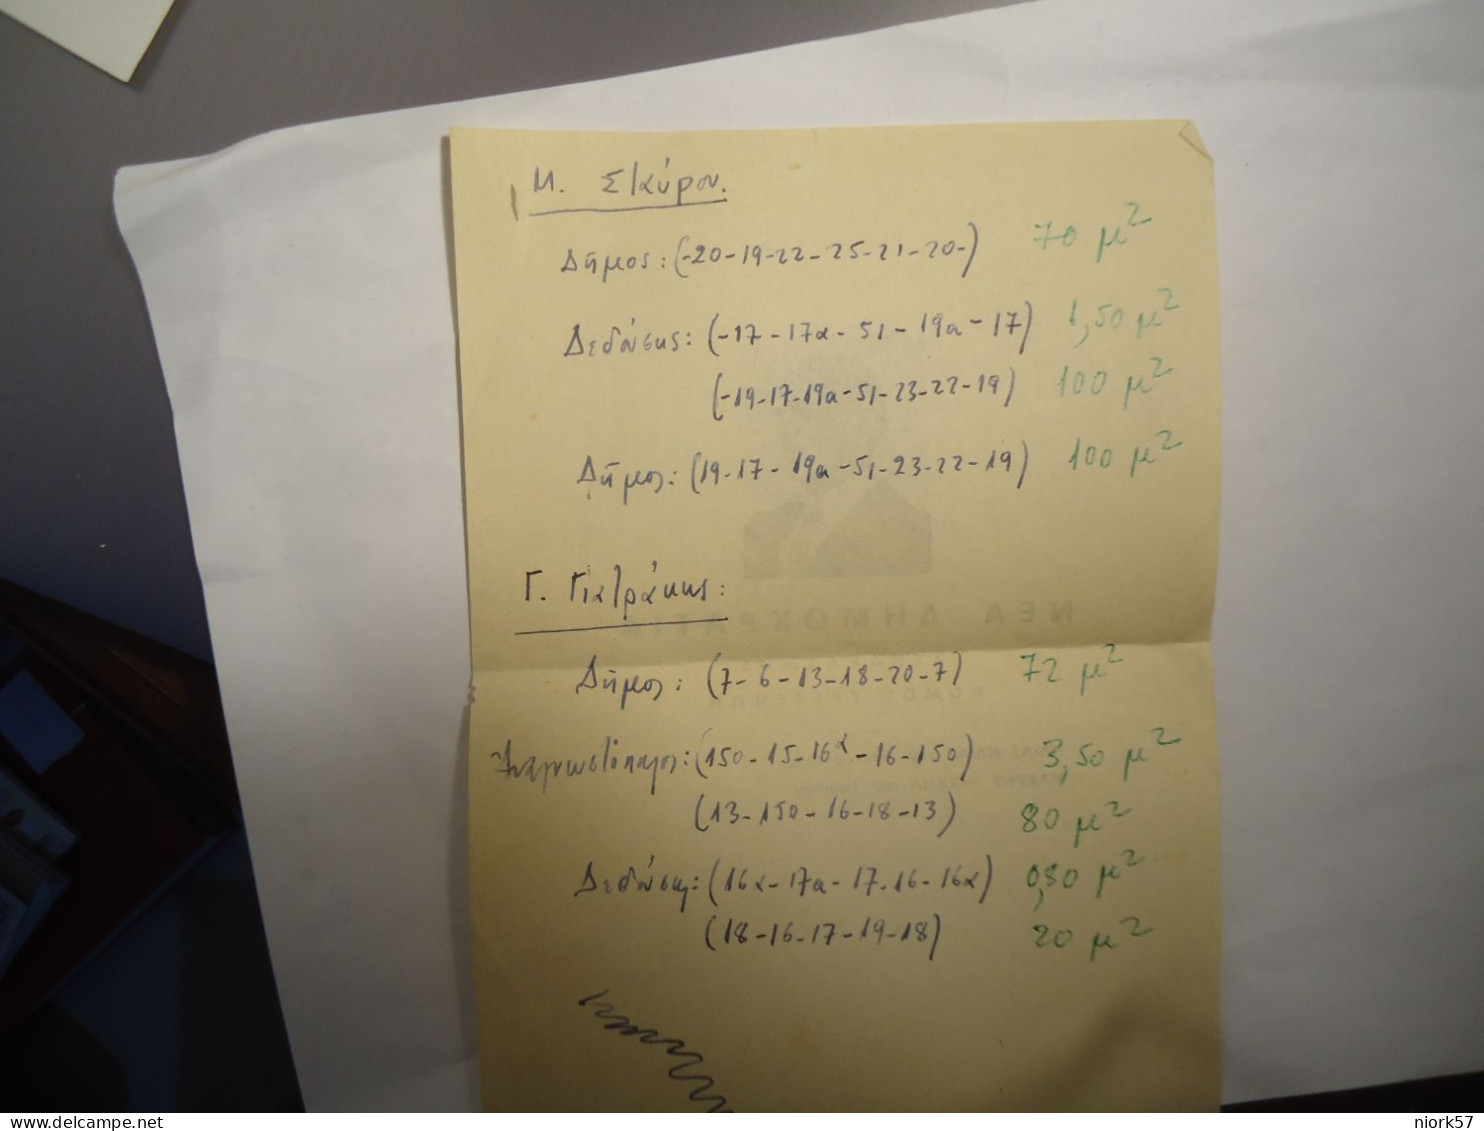 Μ. Σκύρου.
Δήμος: (-20-19-22-25-21-20-) 70 μ²
Δεδούσης: (-17-17α-51-19α-17) 1,50 μ²
(-19-17-19α-51-23-22-19) 100 μ²
Δήμος: (19-17-19α-51-23-22-19) 100 μ²
Γ. Γιατράκης:
ΝΕΑ ΔΗΜΟΚΡΑΤΙΑ
Δήμος: (7-6-13-18-20-7) 72 μ²
(150-15-16α-16-150) 3,50 μ²
(13-150-16-18-13) 80 μ²
Δεδούσης: (16α-17α-17-16-16α) 0,80 μ²
(18-16-17-19-18) 20 μ²
niork57